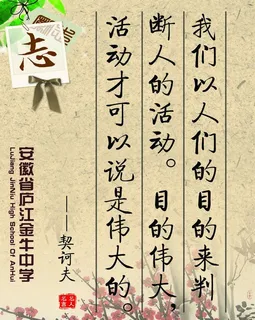 志
我们以人们的目的来判
断人的活动。目的伟大，
活动才可以说是伟大的。
——契诃夫
安徽省庐江金牛中学
LuJiang JinNiu High School Of AnHui